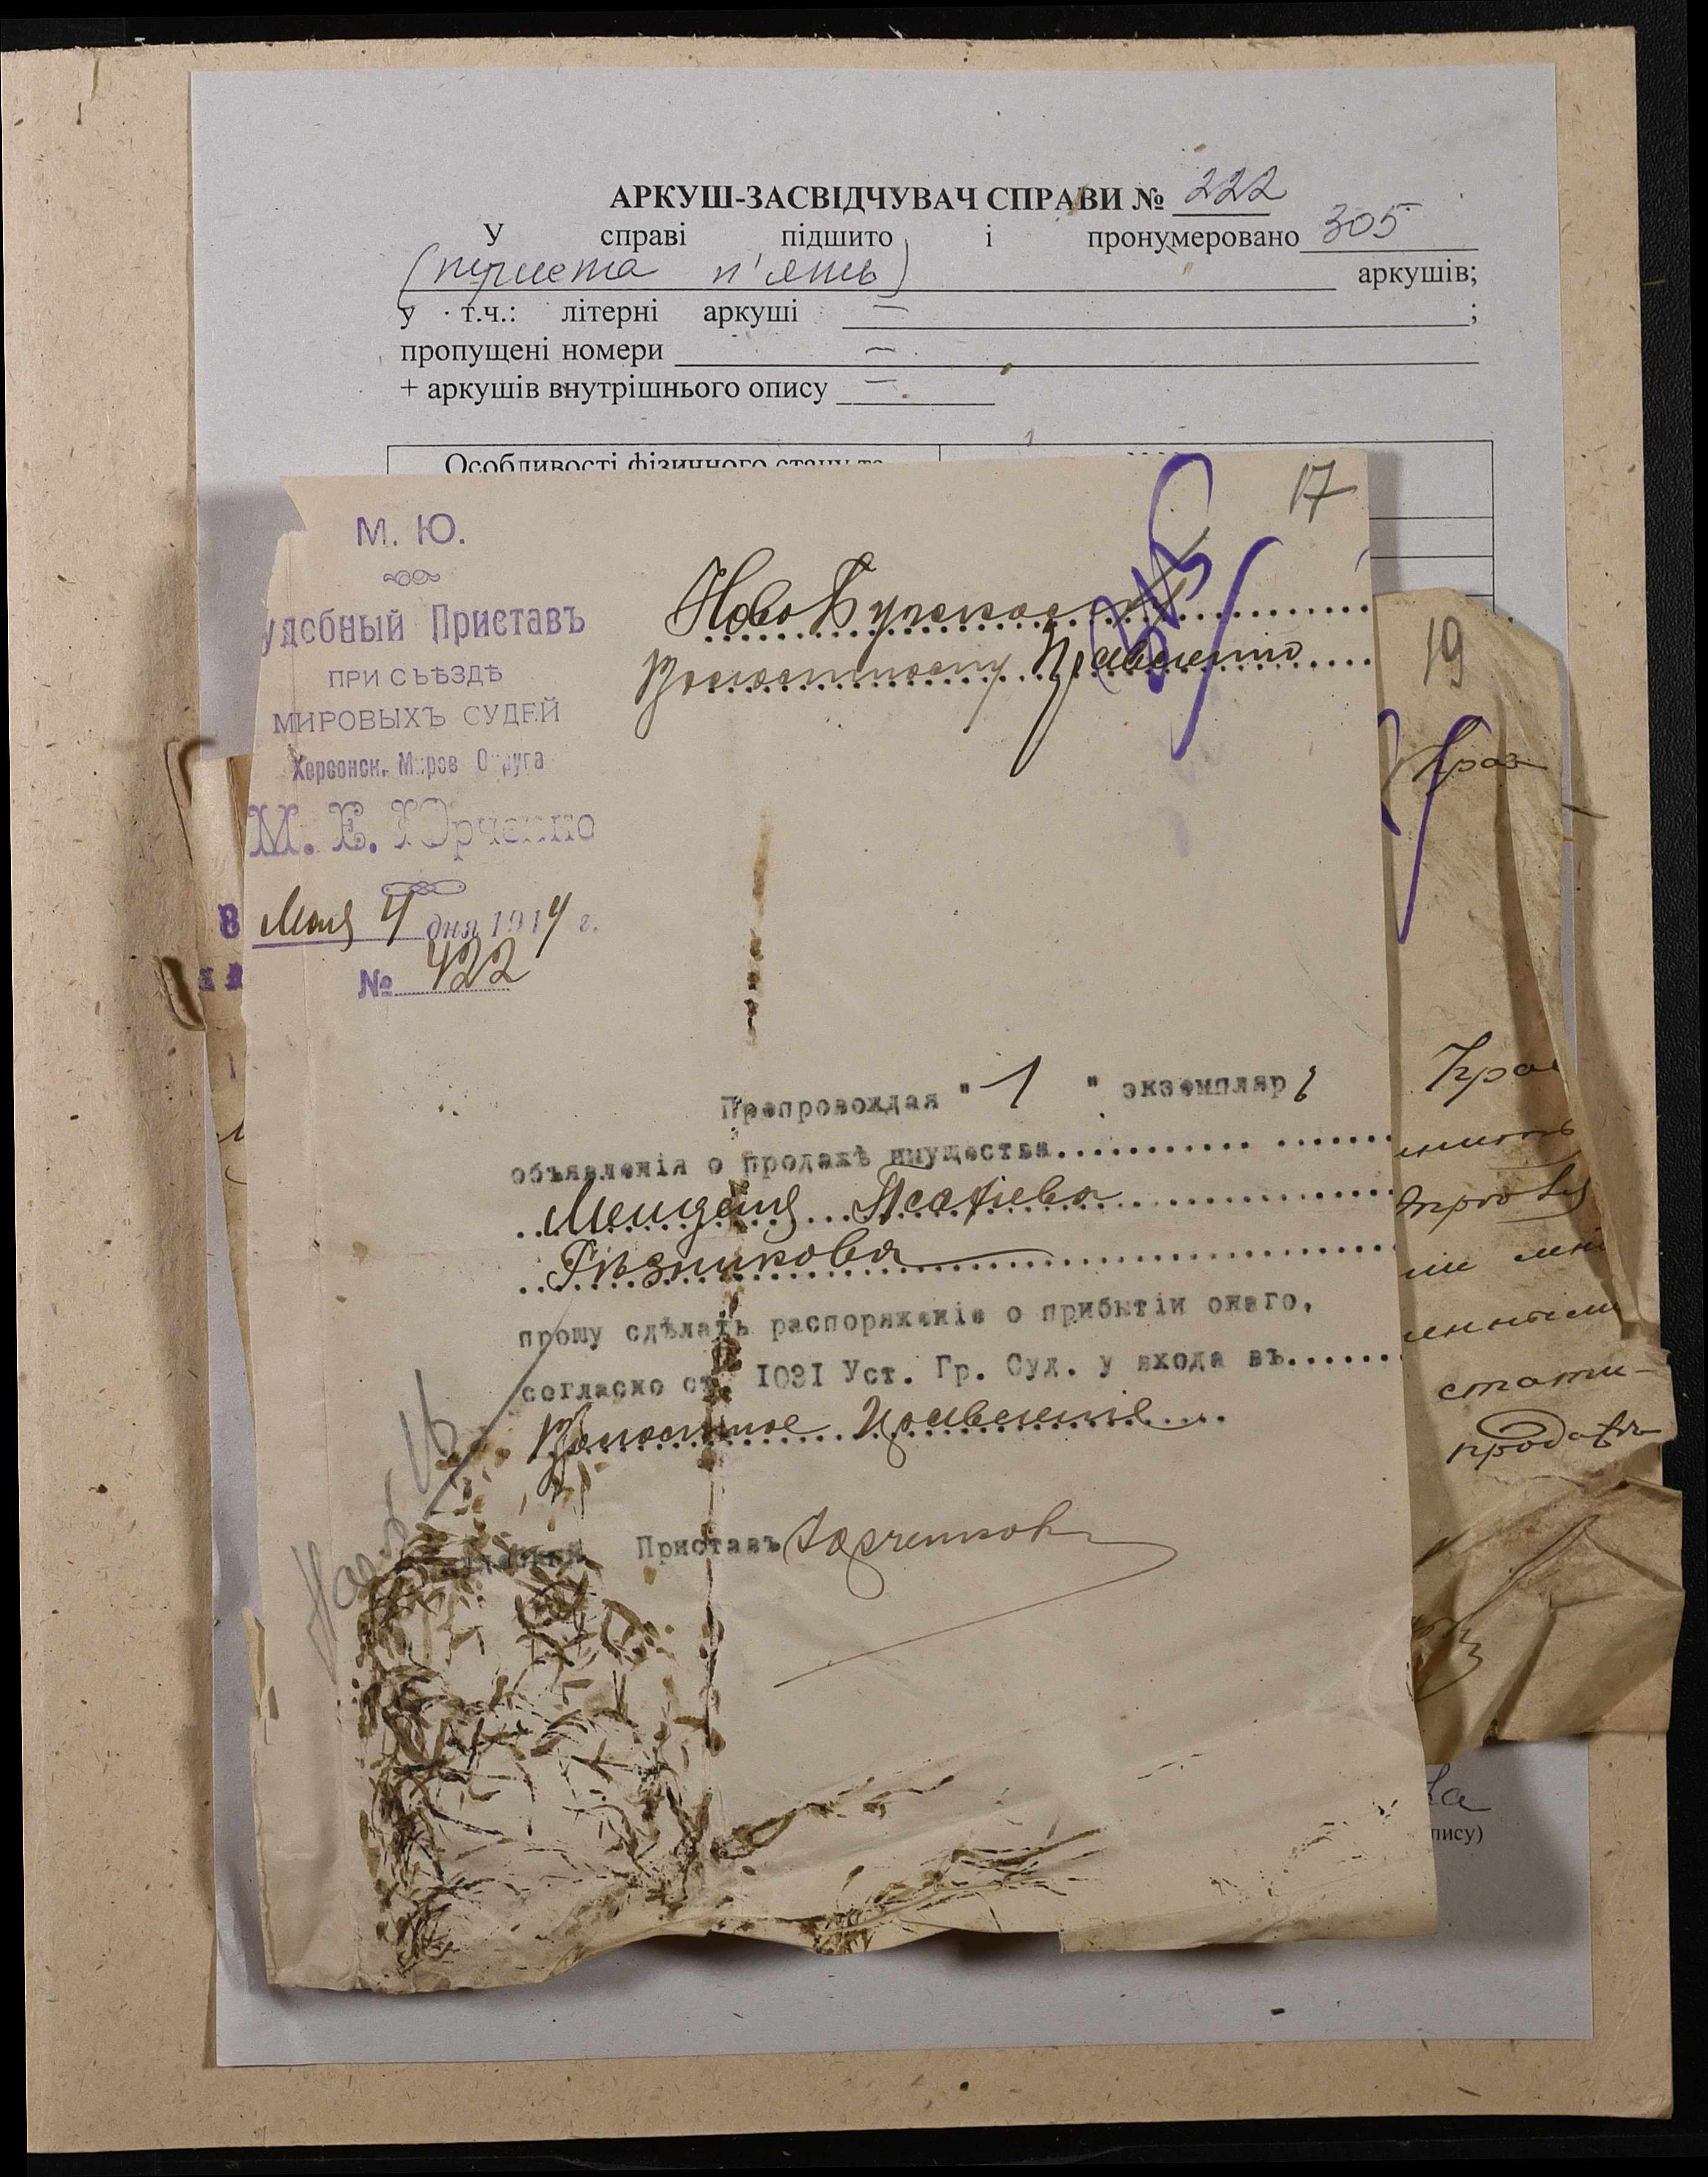 АРКУШ-ЗАСВІДЧУВАЧ СПРАВИ № 222
У справі підшито і пронумеровано 305
(триста п'ять) аркушів;
у т.ч.: літерні аркуші — ;
пропущені номери —
+ аркушів внутрішнього опису —
Особливості фізичного стану та
17
М. Ю.
удебный Приставъ
ПРИ СЪѢЗДѢ
МИРОВЫХЪ СУДЕЙ
Херсонск. Миров Округа
М. Е. Юрченко
Мая 4 дня 1914 г.
№ 422
Ново Бугскому
Волостному Правленію
Препровождая " 1 " экземпляръ
объявленія о продажѣ имущества
Менделя
Рѣзникова
прошу сдѣлать распоряженіе о прибытіи онаго,
согласно ст. 1031 Уст. Гр. Суд. у входа въ
Волостное Правленіе
Приставъ Юрченко
19
стати-
продать
ва
пису)